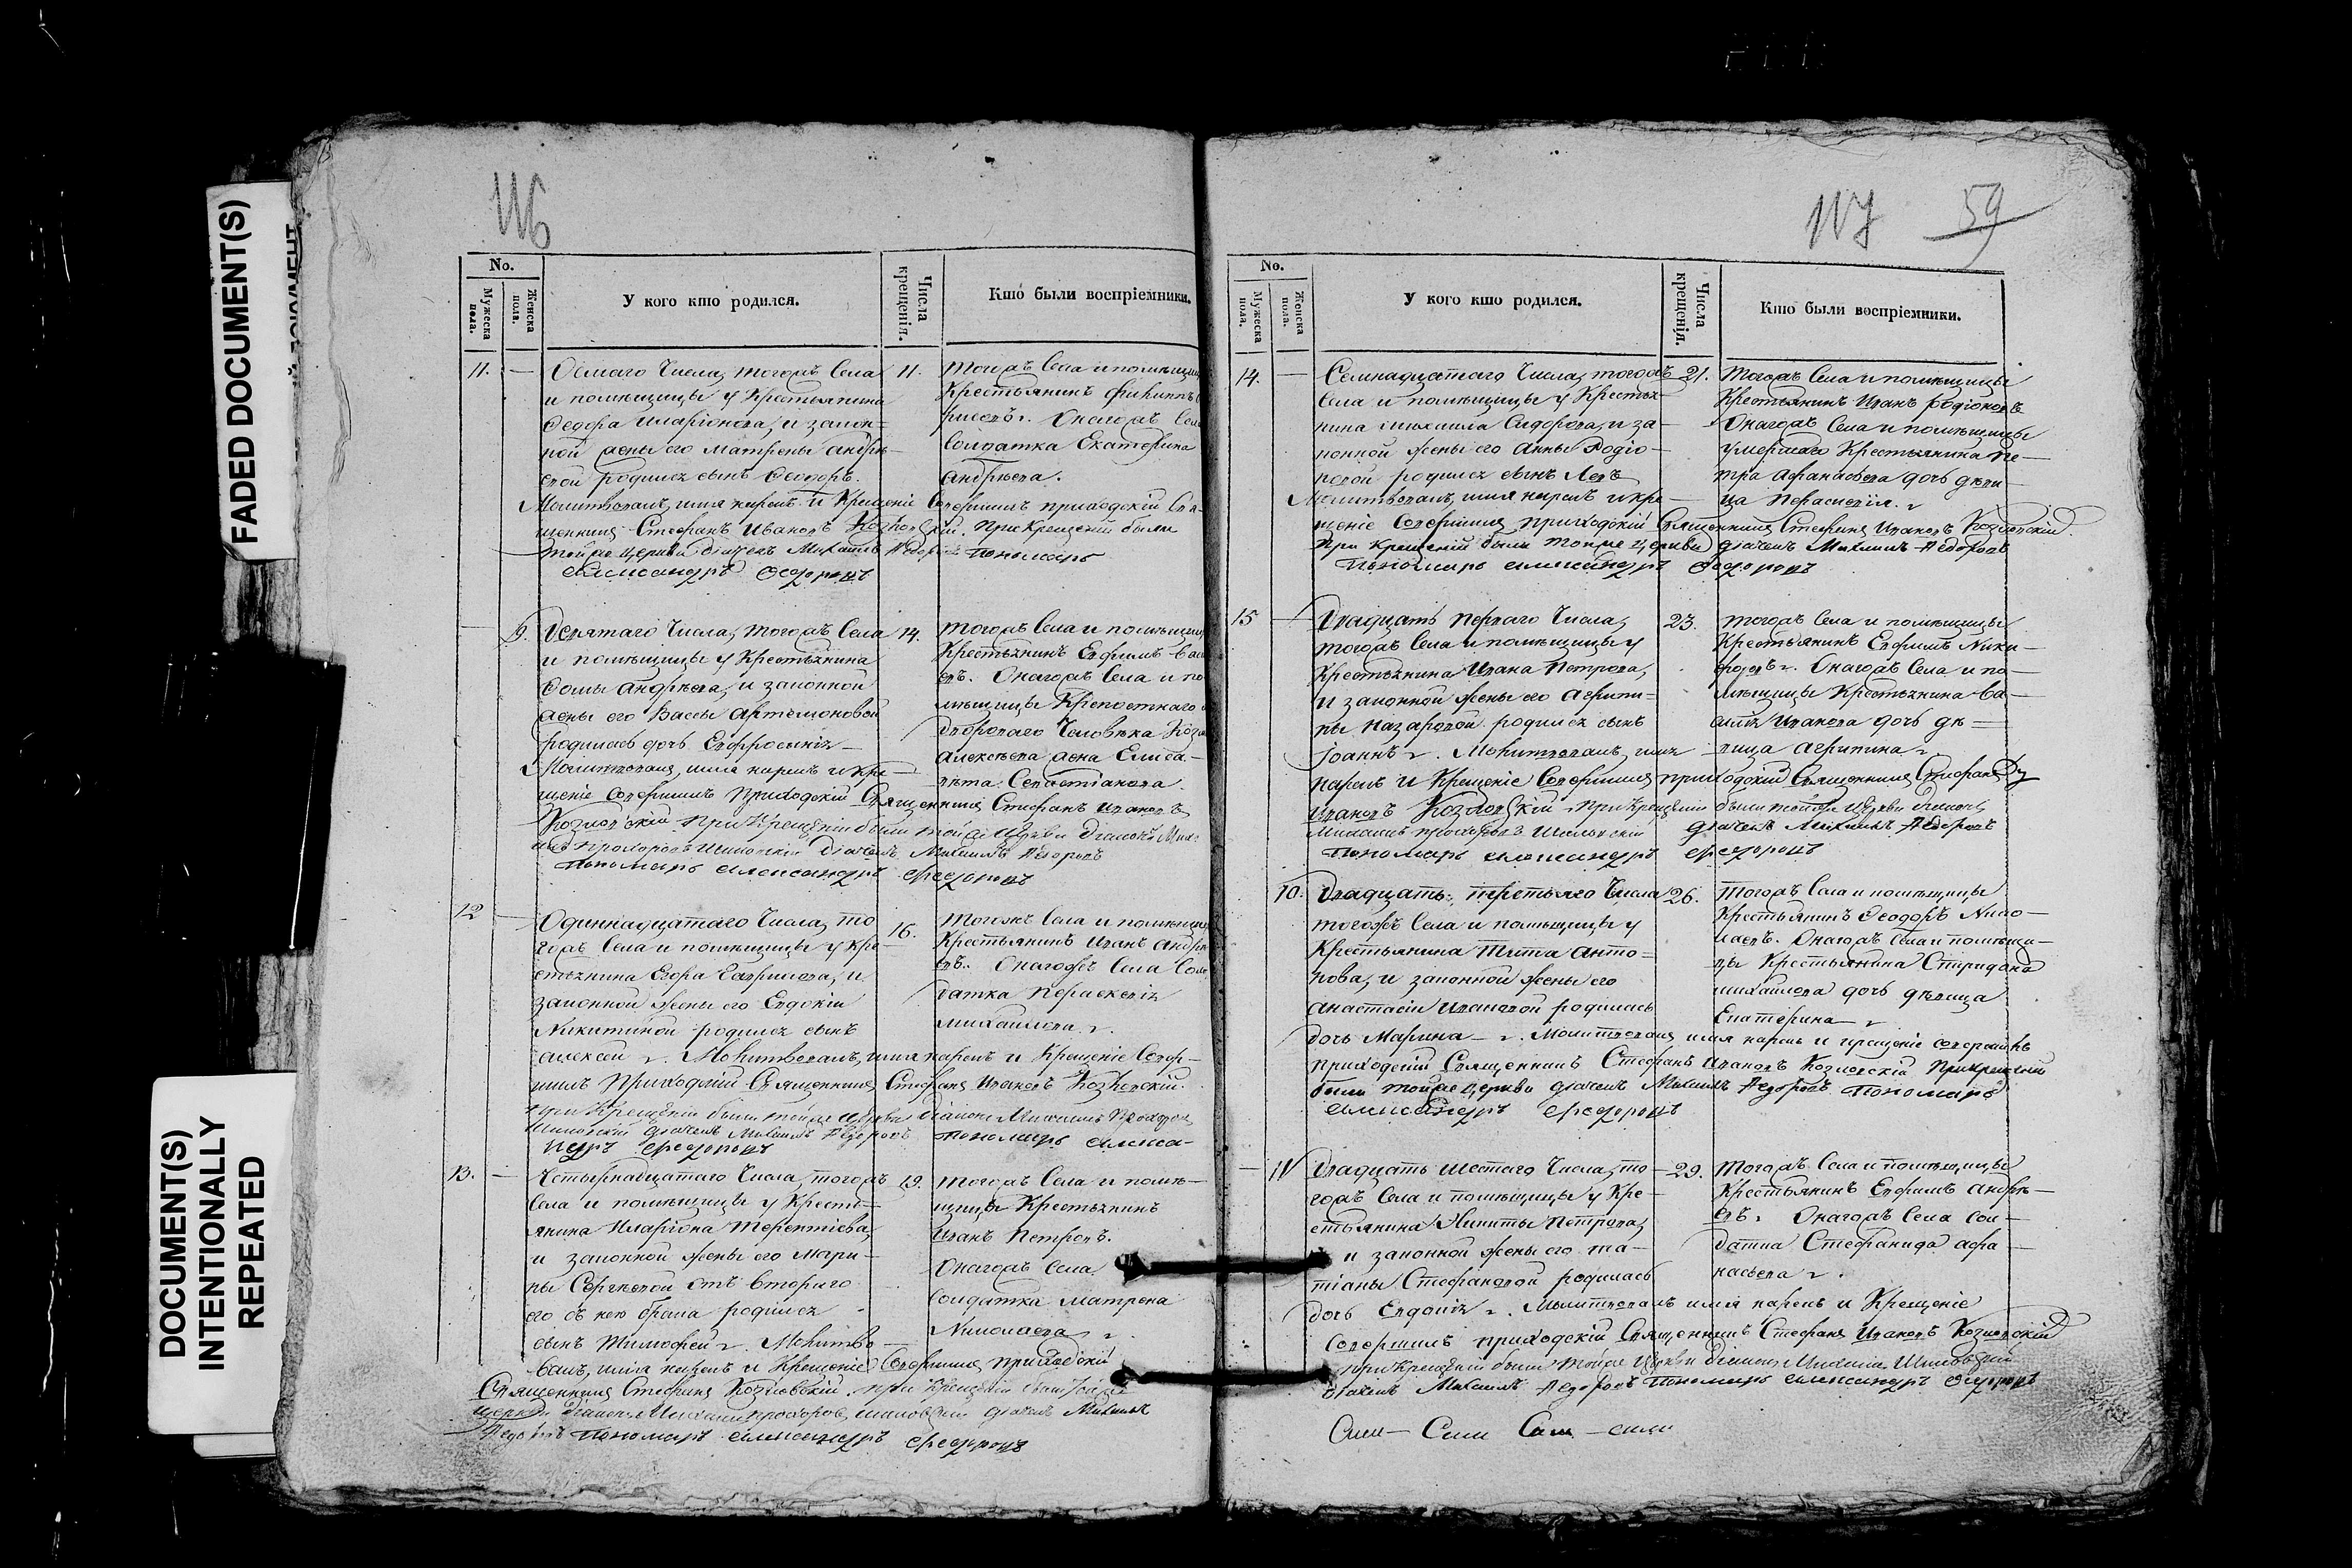 FADED DOCUMENT(S)
DOCUMENT(S)
INTENTIONALLY
REPEATED
116
No.
Мужеска пола.
Женска пола.
У кого кто родился.
Числа крещенія.
Кто были воспріемники.
11. — Осмаго Числа, тогожъ Села
и помѣщицы у Крестьянина
Ѳедора Иларіонова, и закон-
ной жены его Матрены Андрѣ-
евой родился сынъ Ѳеодоръ.
Молитвовалъ, имя нарекъ и Крещеніе Совершилъ приходскій Свя-
щенникъ Стефанъ Ивановъ Козловскій. При Крещеніи были
тойже церкви діячекъ Михаилъ Ѳедоровъ пономарь
Александръ Ѳедоровъ
11.
Тогожъ Села и помѣщицы
Крестьянинъ Филиппъ
Онагожъ Села
Солдатка Екатерина
Андрѣева.
9. Девятаго Числа, тогожъ Села
и помѣщицы у Крестьянина
Ѳомы Андрѣева, и законной
жены его Вассы Артемоновой
родилась дочь Евфросинія
Молитвовалъ, имя нарекъ и Кре-
щеніе Совершилъ Приходскій Священникъ Стефанъ Ивановъ
Козловскій При Крещеніи были тойже Церкви Діаконъ Миха-
илъ Прохоровъ діячекъ Михаилъ Ѳедоровъ
пономарь Александръ Ѳедоровъ
14.
Тогожъ Села и помѣщицы
Крестьянинъ Ефимъ Васи
евъ. Онагожъ Села и по
мѣщицы Крепостнаго
дворового Человѣка Козмы
Алексѣева жена Елиса-
вета Севастіанова.
12 — Одиннадцатаго Числа, то
гожъ Села и помѣщицы у Кре-
стьянина Егора Гаврилова, и
законной жены его Евдокіи
Никитиной родился сынъ
Алексей. Молитвовалъ, имя нарекъ и Крещеніе Совер-
шилъ Приходскій Священникъ Стефанъ Ивановъ Козловскій.
при Крещеніи были тойже Церкви Діаконъ Михаилъ Прохоровъ
діячекъ Михаилъ Ѳедоровъ пономарь Алекса-
ндръ Ѳедоровъ
16.
Тогожъ Села и помѣщицы
Крестьянинъ Иванъ Андре
евъ. Онагожъ Села Сол
датка Параскевія
Михайлова.
13. — Четырнадцатаго Числа, тогожъ
Села и помѣщицы у Кресть-
янина Иларіона Терентіева,
и законной жены его Мари-
ны Сергѣевой отъ втораго
его съ нею брака родился
сынъ Тимофей. Молитво-
валъ, имя нарекъ и Крещеніе Совершилъ приходскій
Священникъ Стефанъ Козловскій. при Крещеніи были тойже
церкви діаконъ Михаилъ Прохоровъ діячекъ Михаилъ
Ѳедоровъ пономарь Александръ Ѳедоровъ
19.
Тогожъ Села и помѣ-
щицы Крестьянинъ
Иванъ Петровъ.
Онагожъ Села
Солдатка Матрена
Николаева.
117 59
No.
Мужеска пола.
Женска пола.
У кого кто родился.
Числа крещенія.
Кто были воспріемники.
14. — Семнадцатаго Числа, тогожъ
Села и помѣщицы у Крестья-
нина Михаила Сидорова, и за-
конной жены его Анны Родіо-
новой родился сынъ Левъ
Молитвовалъ, имя нарекъ и кре-
щеніе Совершилъ приходскій Священникъ Стефанъ Ивановъ Козловскій.
При крещеніи были тойже церкви діячекъ Михаилъ Ѳедоровъ
пономарь Александръ Ѳедоровъ
21.
Тогожъ Села и помѣщицы
Крестьянинъ Иванъ Родіоновъ
Онагожъ Села и помѣщицы
умершаго Крестьянина Пе-
тра Афанасьева дочь дѣви-
ца Параскевія.
15 — Двадцать перваго Числа,
тогожъ Села и помѣщицы у
Крестьянина Ивана Петрова,
и законной жены его Агрипи-
ны Назаровой родился сынъ
Іоаннъ. Молитвовалъ, имя
нарекъ и Крещеніе Совершилъ приходскій Священникъ Стефанъ
Ивановъ Козловскій. При Крещеніи были тойже Церкви Діаконъ
Михаилъ Прохоровъ діячекъ Михаилъ Ѳедоровъ
пономарь Александръ Ѳедоровъ
23.
Тогожъ Села и помѣщицы
Крестьянинъ Ефимъ Ники-
форовъ. Онагожъ Села и по-
мѣщицы Крестьянина Ва-
силія Иванова дочь дѣ-
вица Агрипина.
10. Двадцать третьяго Числа
тогожъ Села и помѣщицы у
Крестьянина Тита Анто-
нова, и законной жены его
Анастасіи Ивановой родилась
дочь Марина. Молитвовалъ имя нарекъ и крещеніе совершилъ
приходскій Священникъ Стефанъ Ивановъ Козловскій При крещеніи
были тойже церкви діячекъ Михаилъ Ѳедоровъ пономарь
Александръ Ѳедоровъ
26.
Тогожъ Села и помѣщицы
Крестьянинъ Ѳеодоръ Нико-
лаевъ. Онагожъ Села и помѣщи-
цы Крестьянина Спиридона
Михайлова дочь дѣвица
Екатерина
11 Двадцать шестаго Числа, то-
гожъ Села и помѣщицы у Кре-
стьянина Никиты Петрова,
и законной жены его Та-
тіаны Стефановой родилась
дочь Евдокія. Молитвовалъ имя нарекъ и Крещеніе
Совершилъ приходскій Священникъ Стефанъ Ивановъ Козловскій
при Крещеніи были тойже Церкви діаконъ Михаилъ
діячекъ Михаилъ Ѳедоровъ пономарь Александръ Ѳедоровъ
29.
Тогожъ Села и помѣщицы
Крестьянинъ Ефимъ Андрѣ-
евъ. Онагожъ Села сол-
датка Стефанида Афа-
насьева.